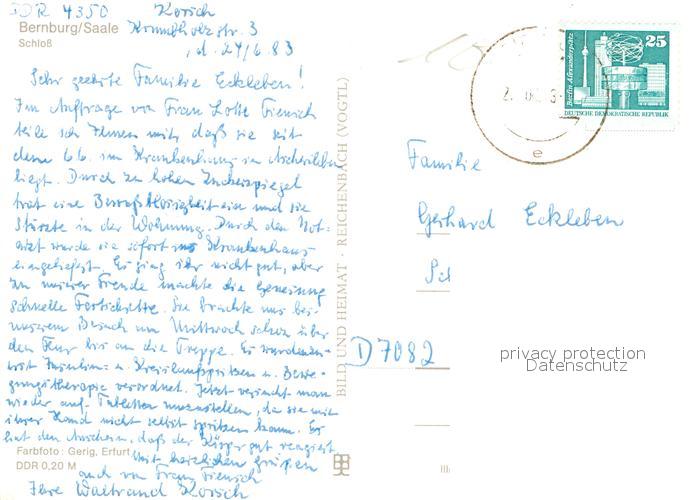 DDR 4350 Korsch
Bernburg/Saale Krumbholzstr. 3
Schloß , d. 24/6.83
Sehr geehrte Familie Eckleben!
Im Auftrage von Frau Lotte
teile ich Ihnen mit, daß sie seit
dem 6.6. im Krankenhaus in Aschersleben
liegt. Durch zu hohen Zuckerspiegel
trat eine Bewußtlosigkeit ein und sie
stürzte in der Wohnung. Durch den Not-
arzt wurde sie sofort ins Krankenhaus
eingeliefert. Es ging ihr nicht gut, aber
zu unserer Freude machte die Genesung
schnelle Fortschritte. Sie brachte uns bei
unserem Besuch am Mittwoch schon über
den Flur bis an die Treppe. Es wurden
mit Insulin- u. Kreislaufspritzen u. Bewe-
gungstherapie verordnet. Jetzt versucht man
wieder auf Tabletten umzustellen, da sie mit
ihrer Hand nicht selbst spritzen kann. Es
hat den Anschein, daß der Körper gut reagiert
Farbfoto: Gerig, Erfurt
Mit herzlichen Grüßen
DDR 0,20 M
auch von Frau
Ihre Waltraud Korsch
BILD UND HEIMAT · REICHENBACH (VOGTL)
25
Berlin Alexanderplatz
DEUTSCHE DEMOKRATISCHE REPUBLIK
e
Familie
Gerhard Eckleben
D 7082
privacy protection
Datenschutz